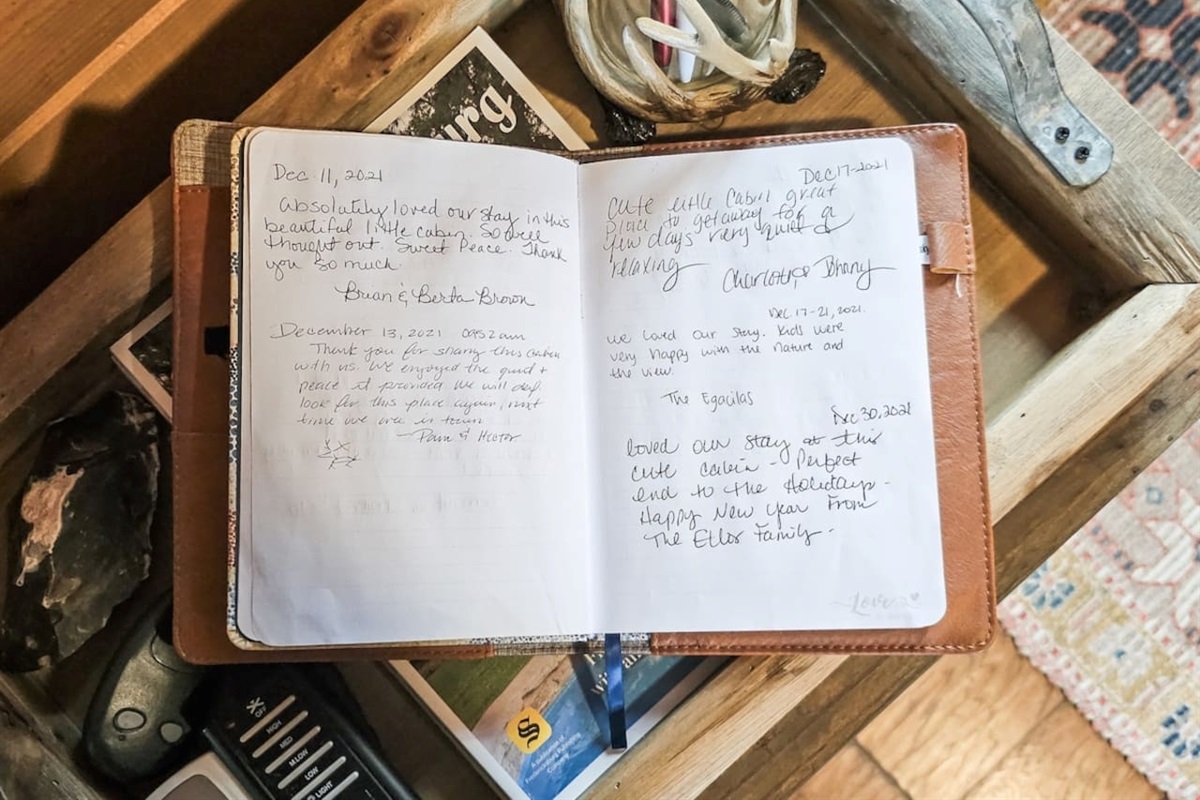 urg
Dec 11, 2021
Absolutely loved our stay in this
beautiful little cabin. So well
thought out. Sweet Peace. Thank
you so much.
Brian & Berta Brown
December 13, 2021 0952am
Thank you for sharing this cabin
with us. We enjoyed the quiet +
peace it provided. We will def.
look for this place again, next
time we are in town
— Pam & Hector
Dec 17-2021
Cute little Cabin great
place to getaway for a
few days very quiet &
relaxing
Charlotte
Dec 17-21, 2021.
we loved our stay. Kids were
very happy with the nature and
the view.
The Egacilas
Dec. 30, 2021
loved our stay at this
cute cabin - Perfect
end to the Holidays -
Happy New Year From
The Family -
Love
S
A publication of
Publishing
Company
OFF
HIGH
MED
M.LOW
LOW
LIGHT